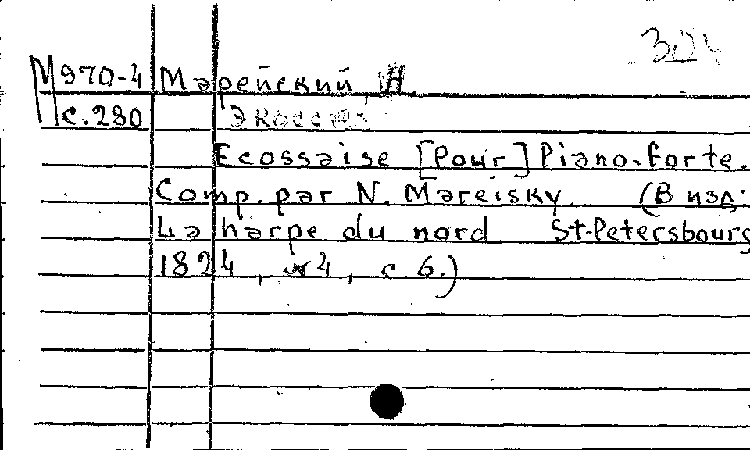 М970-4 Марейский, Н.
с.280 Экоссез
Ecossaise [Pour] Piano-forte.
Comp. par N. Mareisky. (В изд:
La harpe du nord St-Petersbourg
1824, № 4, с 6.)